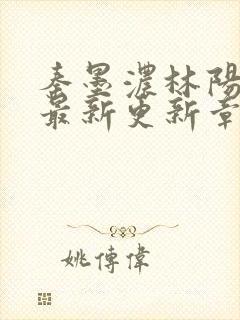 秦墨濃林陽
最新更新章
姚傳偉